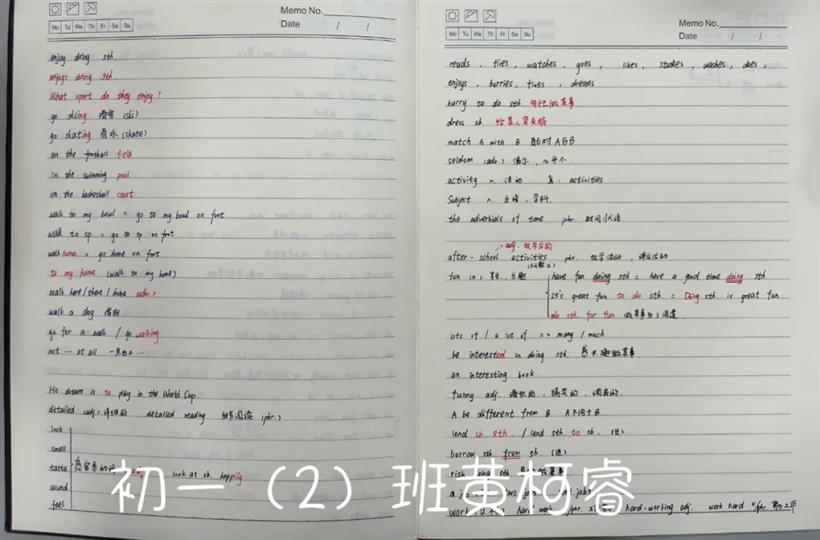 Memo No.
Date / /
Mo Tu We Th Fr Sa Su
enjoy doing sth
enjoys doing sth
What sport do they enjoy?
go skiing 滑雪 (ski)
go skating 滑冰 (skate)
on the football field
in the swimming pool
on the basketball court
walk to my = go to my on foot
walk to sp. = go to sp. on foot
walk home = go home on foot
to my home (walk to my home)
walk here / there / home adv.
walk a dog 遛狗
go for a walk / go walking
not … at all 一点也不…
His dream is to play in the World Cup.
detailed (adj.) 详细的 detailed reading 细节阅读 (phr.)
look
smell
taste 感官系动词
sound
feel
look at sb. happily
Memo No.
Date / /
Mo Tu We Th Fr Sa Su
reads , flies , watches , goes , likes , studies , washes , does ,
enjoys , hurries , , dresses
hurry to do sth 匆忙做某事
dress sb. 给某人穿衣服
match A with B 配对A与B
seldom (adv.) 偶尔 ,
activity n. 活动 复: activities
Subject n. 主语 , 学科
the adverbials of time phr. 时间状语
adj. 放学后的
after-school activities phr. 放学活动 , 课后活动
fun (n.) 乐趣 have fun doing sth = have a good time doing sth
It's great fun to do sth. = Doing sth. is great fun
do sth. for fun 做某事为了消遣
lots of / a lot of == many / much
be interested in doing sth. 感兴趣做某事
an interesting book
funny adj. 滑稽的 , 搞笑的 ,
A be different from B A不同于B
lend sb. sth. / lend sth. to sb. (出)
borrow sth from sb. (进)
risk doing sth.
a job jobs
work hard work phr. hard-working adj. work hard v/phr. 努力工作
初一（2）班黄柯睿